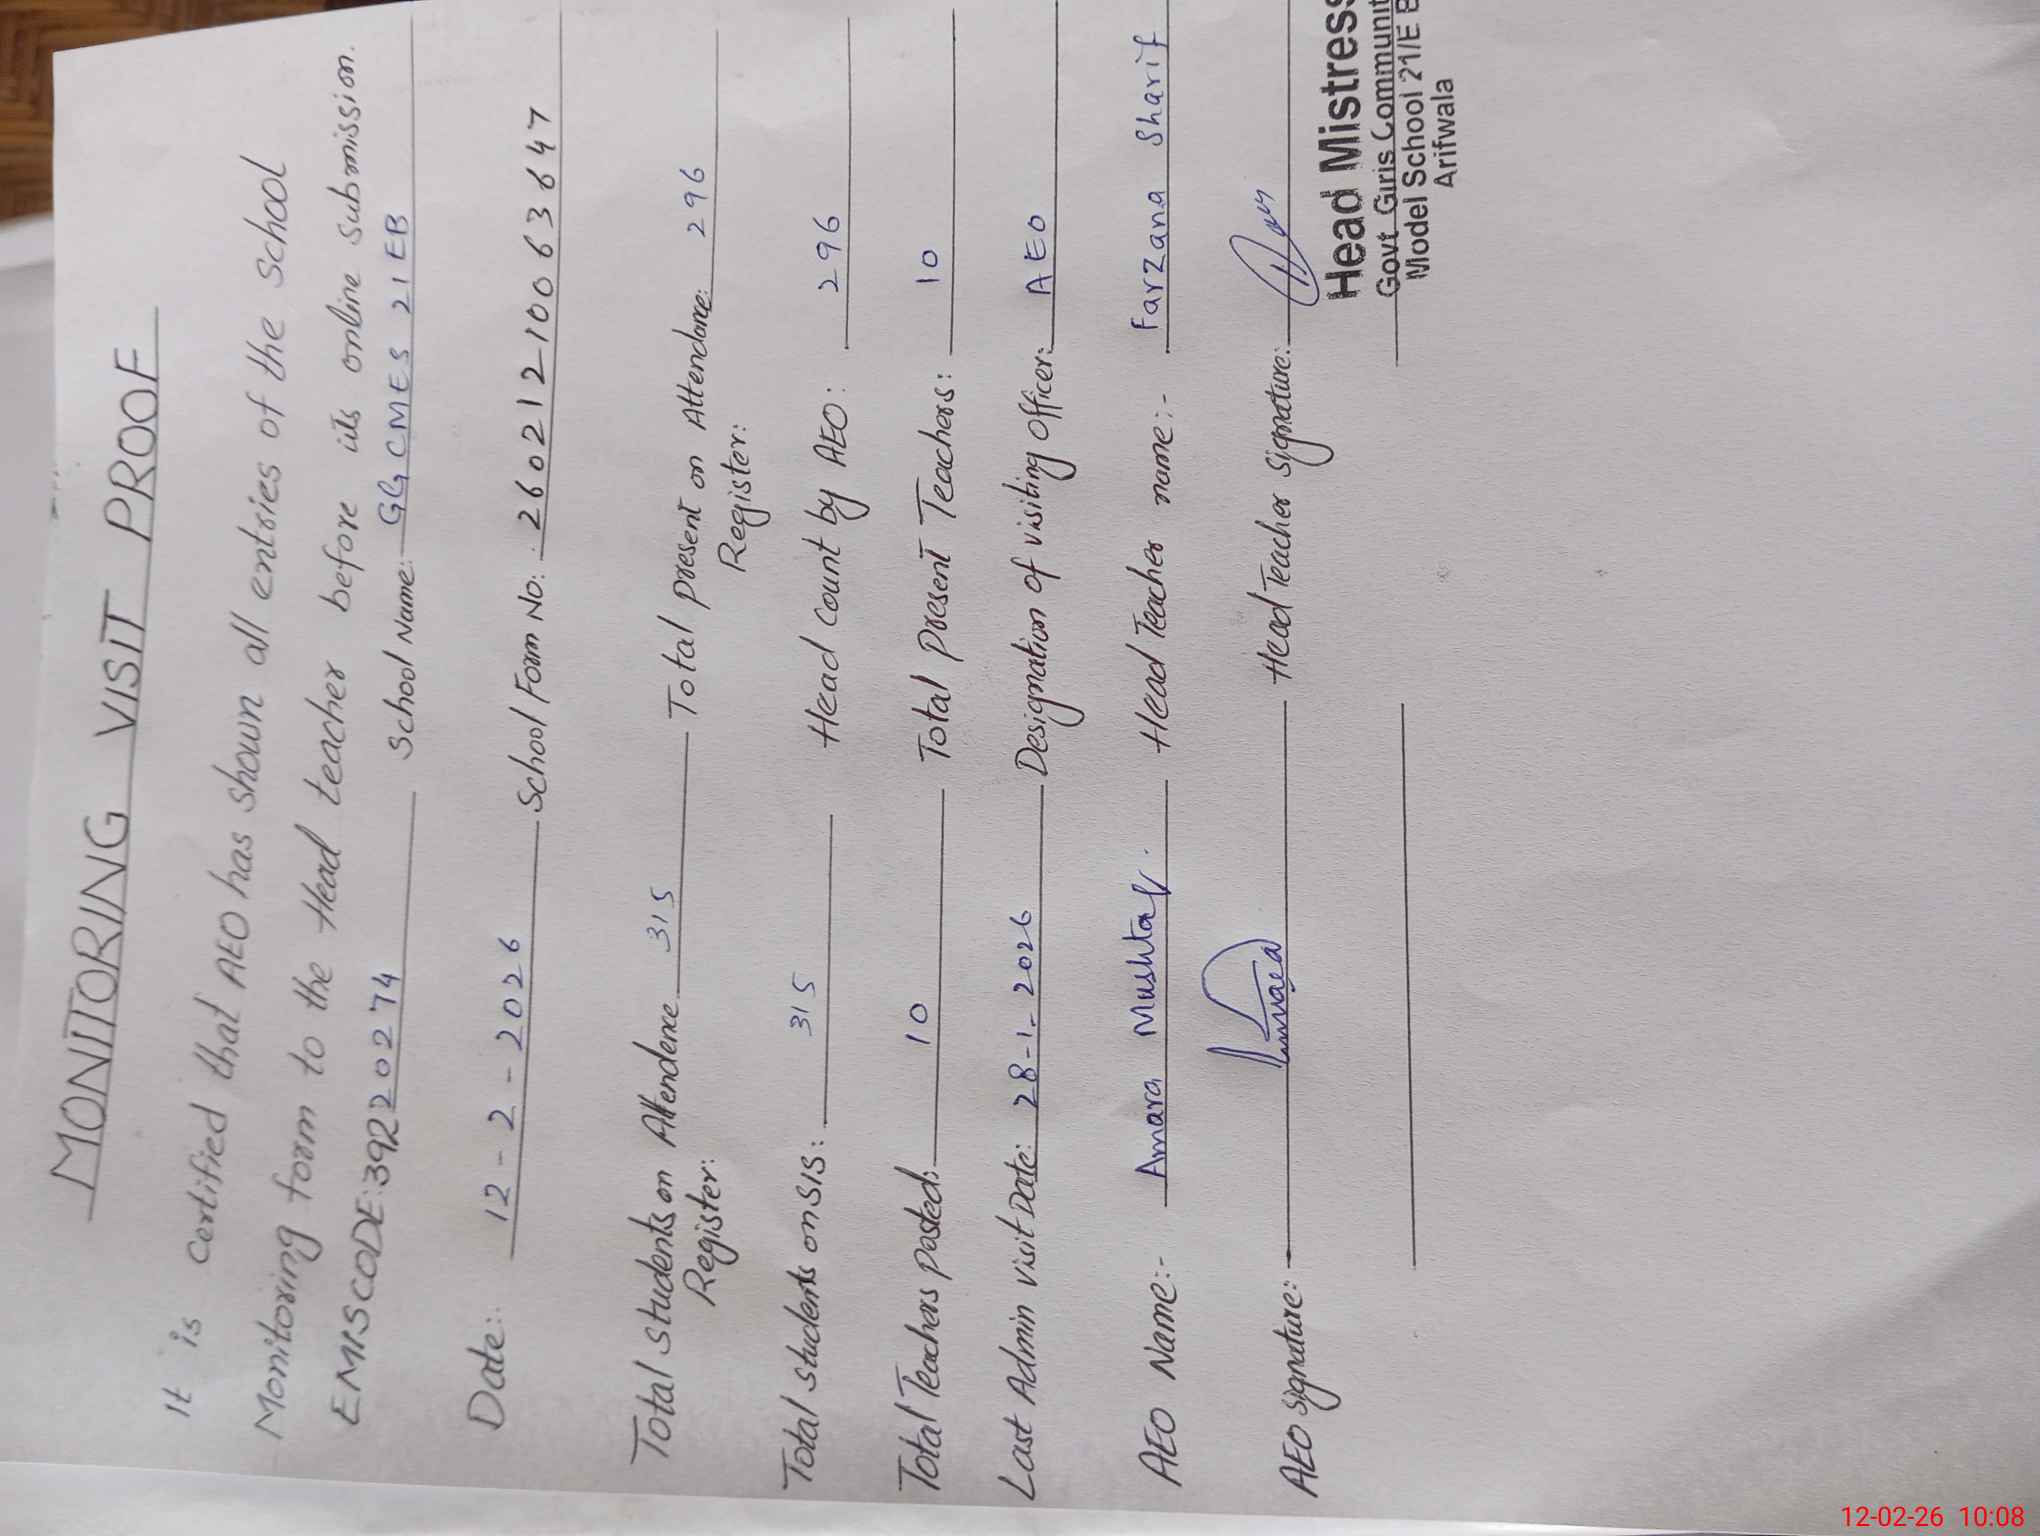 MONITORING VISIT PROOF
It is certified that AEO has shown all entries of the School
Monitoring form to the Head teacher before its online submission.
EMISCODE:39220274 School Name: GGCMES 21EB
Date: 12-2-2026 School Form No: 26021210063647
Total students on Attendence 315 Total present on Attendance: 296
Register: Register:
Total students on SIS: 315 Head count by AEO: 296
Total Teachers posted: 10 Total Present Teachers: 10
Last Admin visit Date: 28-1-2026 Designation of visiting officer: AEO
AEO Name:- Amara Mushtaq. Head Teacher name:- Farzana Sharif
AEO Signature: Head Teacher Signature:
Head Mistress
Govt Girls Communit
Model School 21/E B
Arifwala
12-02-26 10:08